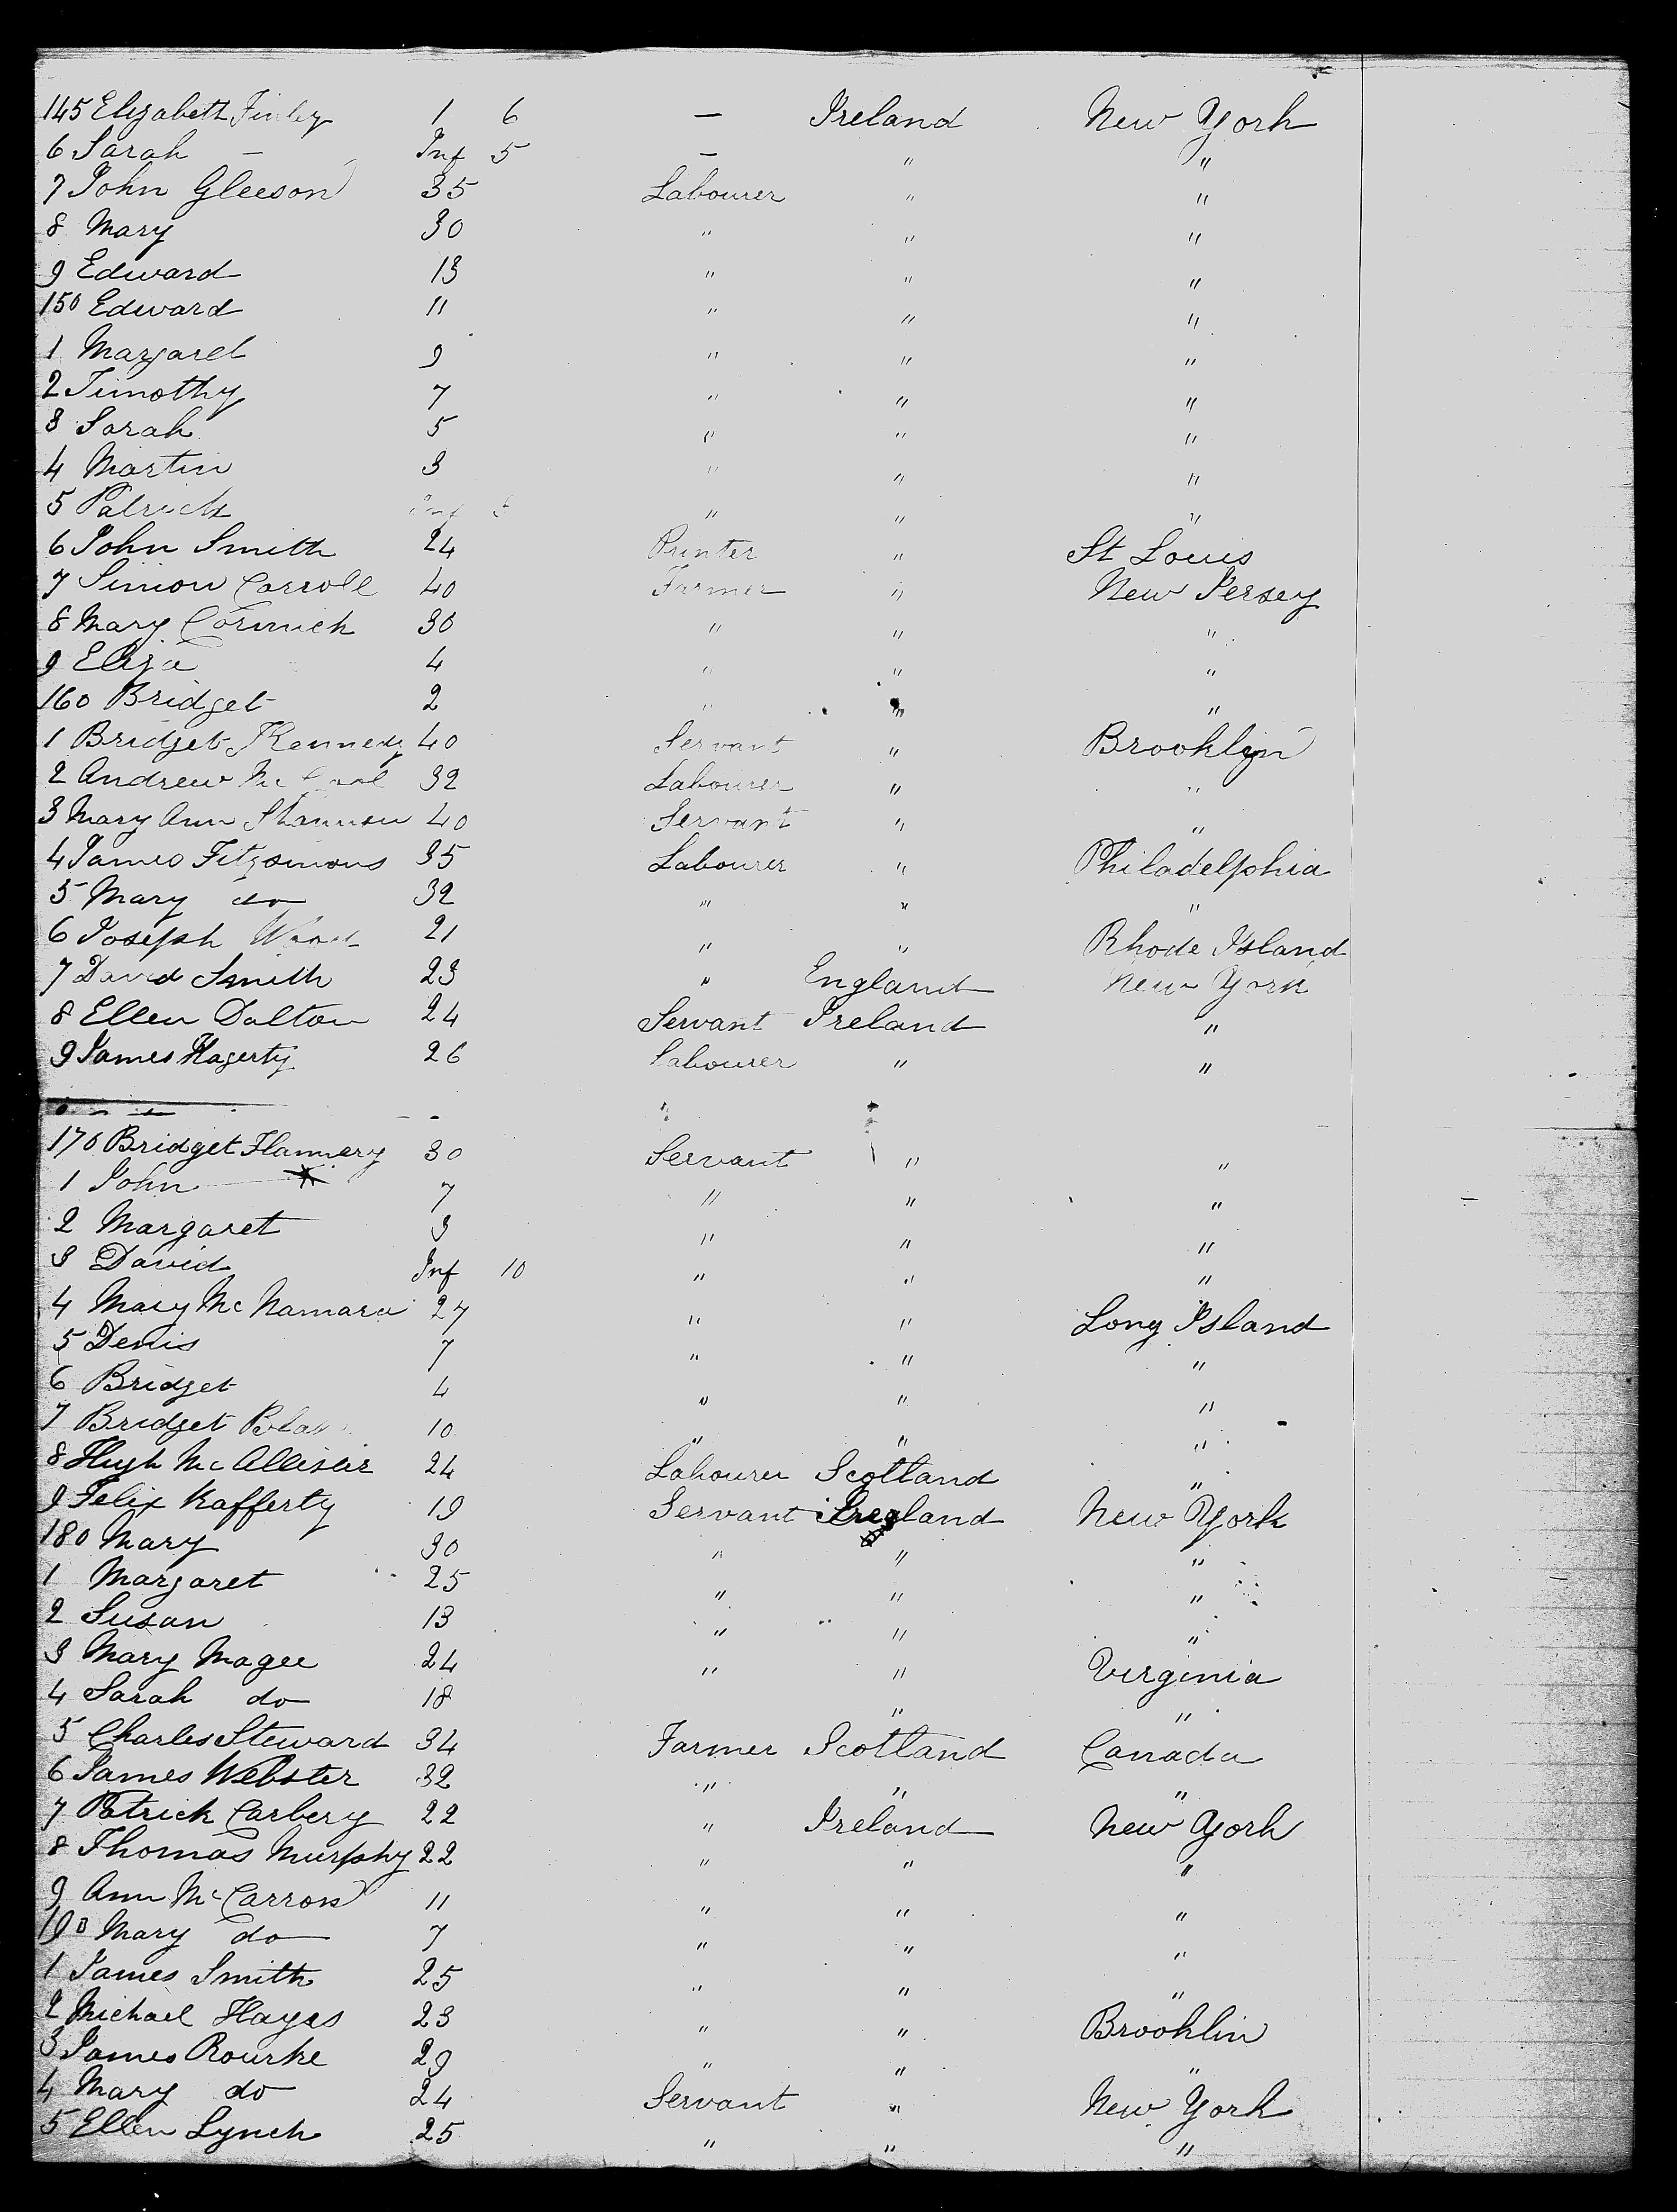 145 Elizabeth Finley 1 6 — Ireland New York
6 Sarah — Inf 5 — " "
7 John Gleeson 35 Labourer " "
8 Mary 30 " " "
9 Edward 13 " " "
150 Edward 11 " " "
1 Margaret 9 " " "
2 Timothy 7 " " "
3 Sarah 5 " " "
4 Martin 3 " " "
5 Patrick Inf " " "
6 John Smith 24 Printer " St Louis
7 Simon Carroll 40 Farmer " New Jersey
8 Mary Cormick 30 " " "
9 Eliza 4 " " "
160 Bridget 2 " " "
1 Bridget Kennedy 40 Servant " Brooklyn
2 Andrew Mc 32 Labourer " "
3 Mary Ann 40 Servant " "
4 James Fitzsimons 35 Labourer " Philadelphia
5 Mary do 32 " " "
6 Joseph 21 " " Rhode Island
7 David Smith 23 " England New York
8 Ellen Dalton 24 Servant Ireland "
9 James Hagerty 26 Labourer " "
170 Bridget Flannery 30 Servant " "
1 John 7 " " "
2 Margaret 3 " " "
3 David Inf 10 " " "
4 Mary Mc Namara 27 " " Long Island
5 Denis 7 " " "
6 Bridget 4 " " "
7 Bridget 10 " " "
8 Hugh Mc Allister 24 Labourer Scotland "
9 Felix Rafferty 19 Servant Ireland New York
180 Mary 30 " " "
1 Margaret 25 " " "
2 Susan 13 " " "
3 Mary Magee 24 " " Virginia
4 Sarah do 18 " "
5 Charles Steward 34 Farmer Scotland Canada
6 James Webster 32 " " "
7 Patrick Carbery 22 " Ireland New York
8 Thomas Murphy 22 " " "
9 Ann Mc Carron 11 " " "
190 Mary do 7 " " "
1 James Smith 25 " " "
2 Michael Hayes 23 " " Brooklin
3 James Rourke 29 " " "
4 Mary do 24 Servant " New York
5 Ellen Lynch 25 " " "